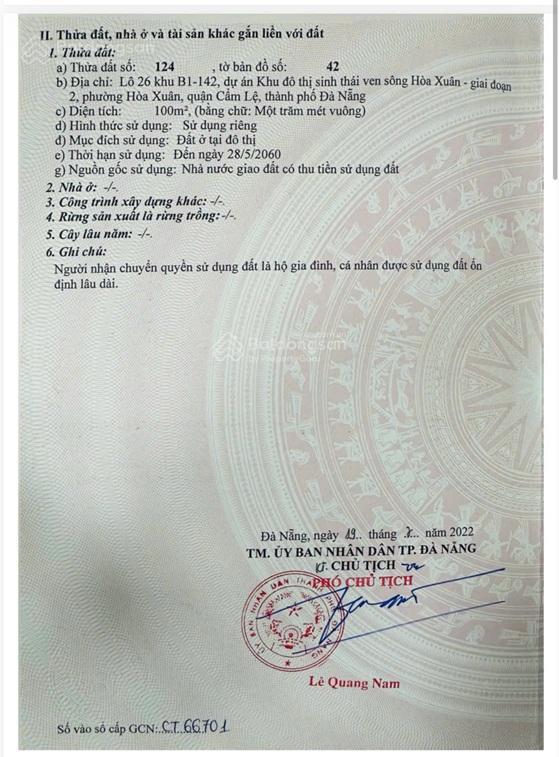 II. Thửa đất, nhà ở và tài sản khác gắn liền với đất
1. Thửa đất:
a) Thửa đất số: 124 , tờ bản đồ số: 42
b) Địa chỉ: Lô 26 khu B1-142, dự án Khu đô thị sinh thái ven sông Hòa Xuân - giai đoạn
2, phường Hòa Xuân, quận Cẩm Lệ, thành phố Đà Nẵng
c) Diện tích: 100m², (bằng chữ: Một trăm mét vuông)
d) Hình thức sử dụng: Sử dụng riêng
đ) Mục đích sử dụng: Đất ở tại đô thị
e) Thời hạn sử dụng: Đến ngày 28/5/2060
g) Nguồn gốc sử dụng: Nhà nước giao đất có thu tiền sử dụng đất
2. Nhà ở: -/-.
3. Công trình xây dựng khác: -/-.
4. Rừng sản xuất là rừng trồng:-/-.
5. Cây lâu năm: -/-.
6. Ghi chú:
Người nhận chuyển quyền sử dụng đất là hộ gia đình, cá nhân được sử dụng đất ổn
định lâu dài.
Batdongsan
by PropertyGuru
Đà Nẵng, ngày 19.. tháng ... năm 2022
TM. ỦY BAN NHÂN DÂN TP. ĐÀ NẴNG
KT. CHỦ TỊCH
PHÓ CHỦ TỊCH
ỦY BAN NHÂN DÂN THÀNH PHỐ ĐÀ NẴNG
Lê Quang Nam
Số vào sổ cấp GCN: CT 66701